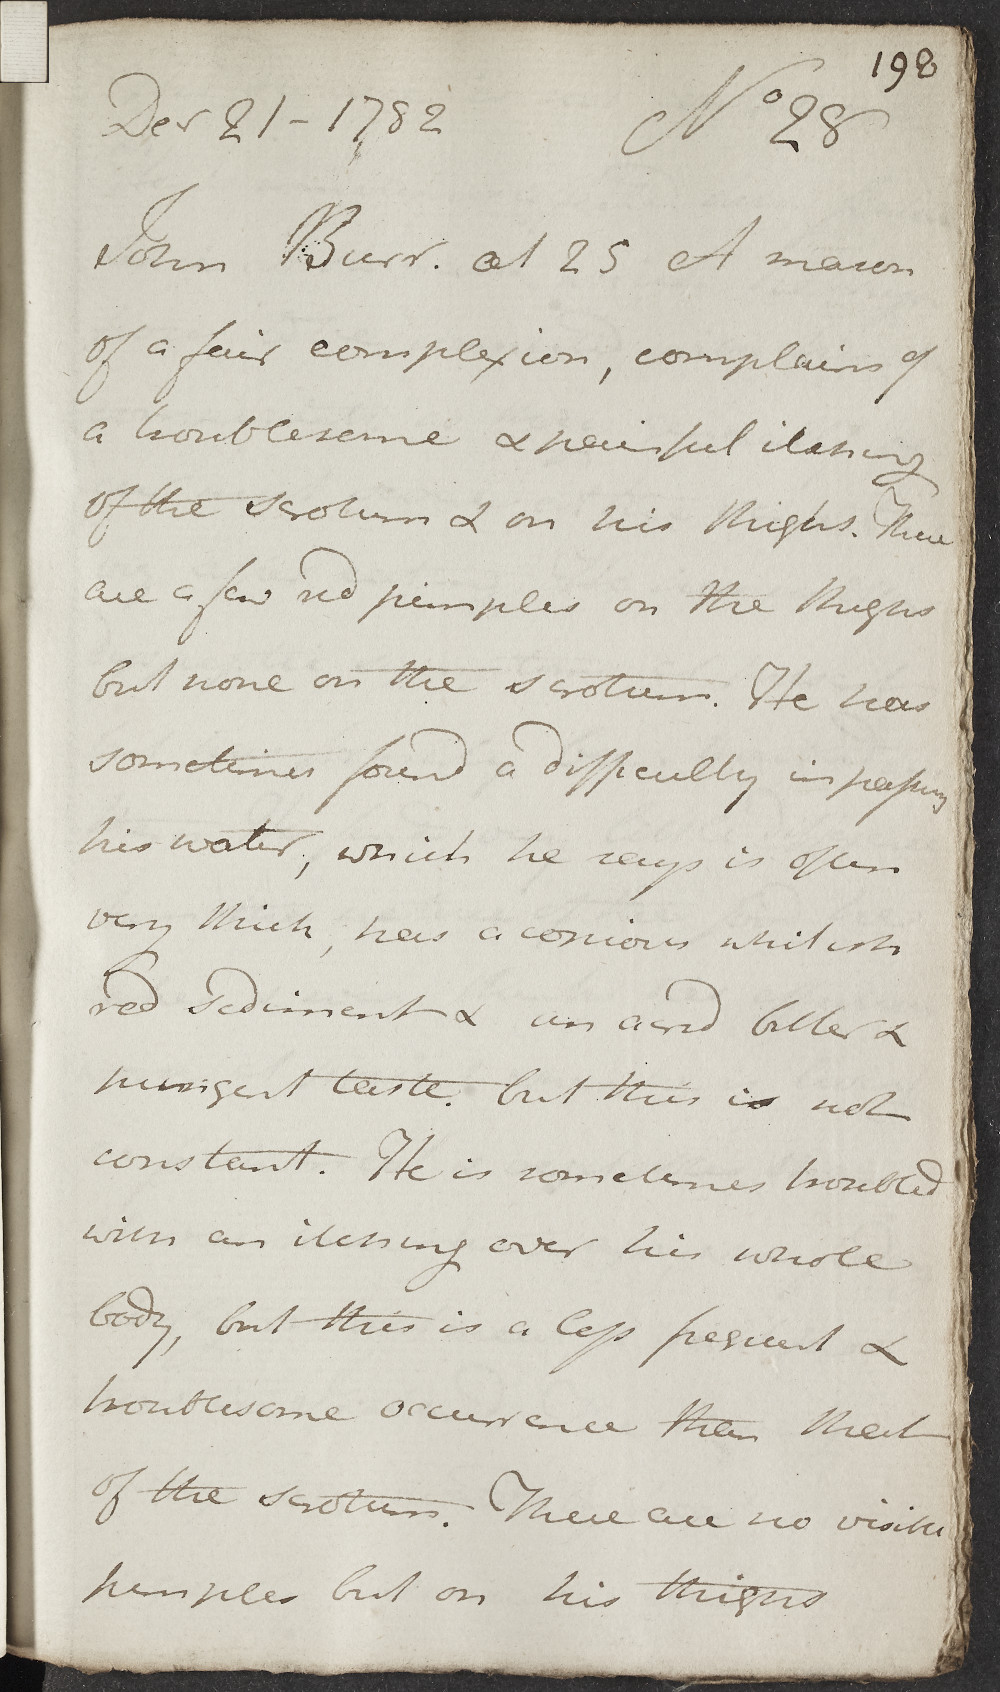 198
Decr 21 - 1782 No 28
John Burr. aet 25 A mason
of a fair complexion, complains of
a troublesome & painful itching
of the scrotum & on his thighs. There
are a few red pimples on the thighs
but none on the scrotum. He has
sometimes found a difficulty in passing
his water, which he says is often
very thick, has a copious whitish
red sediment & an acrid bitter &
pungent taste. but this is not
constant. He is sometimes troubled
with an itching over his whole
body, but this is a less frequent &
troublesome occurrence than that
of the scrotum. There are no visible
pimples but on his thighs